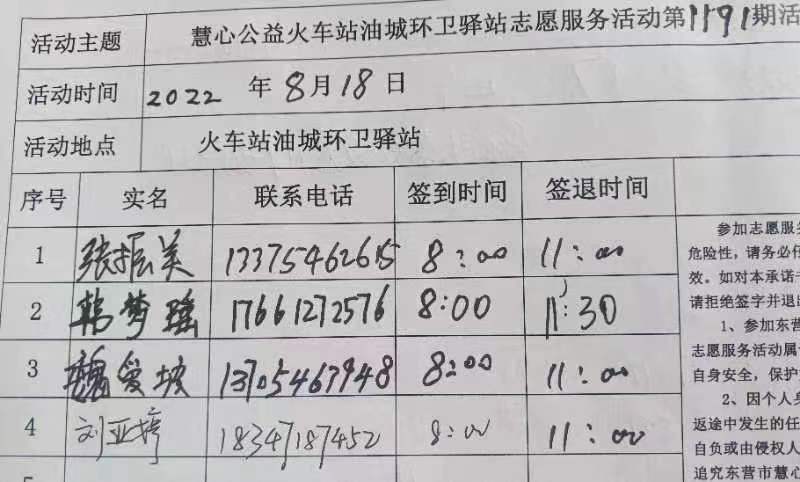 活动主题 慧心公益火车站油城环卫驿站志愿服务活动第1191期活
活动时间 2022 年 8月 18 日
活动地点 火车站油城环卫驿站
序号 实名 联系电话 签到时间 签退时间
1 张振美 13375462615 8:00 11:00
2 韩梦瑶 17661272576 8:00 11:30
3 魏爱坡 13705467948 8:00 11:00
4 刘亚婷 18347187452 8:00 11:00
参加志愿服务
危险性，请务必仔
效。如对本承诺书
请拒绝签字并退出
1、参加东营
志愿服务活动属
自身安全，保护
2、因个人身
返途中发生的任
自负或由侵权人
追究东营市慧心